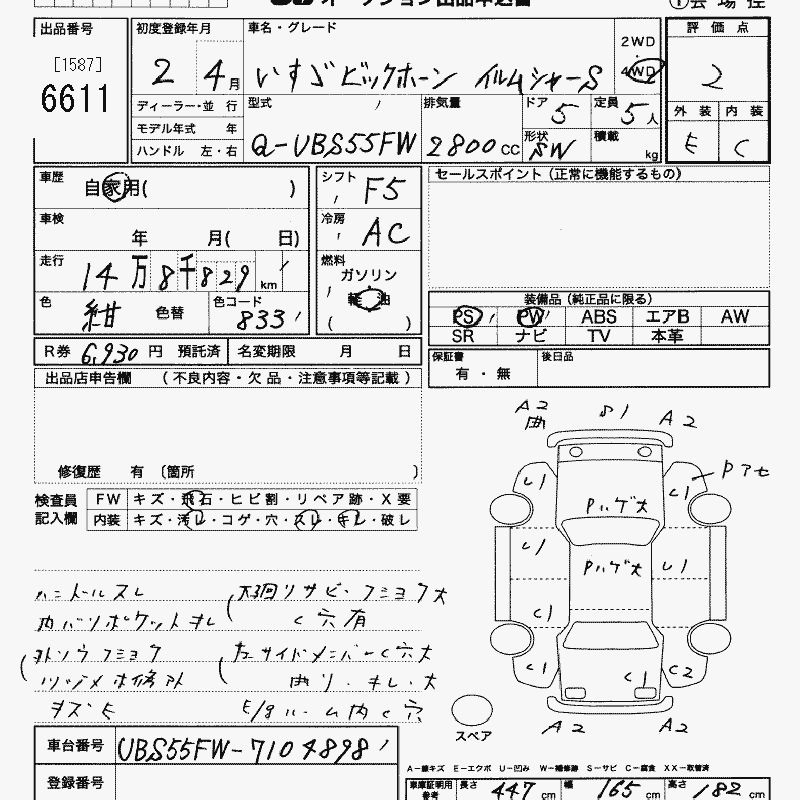 出品番号
[1587]
6611
初度登録年月
2 4月
車名・グレード
いすゞビッグホーン イルムシャーS
2WD
4WD
評価点
2
外装 内装
E C
ディーラー・並 行
モデル年式 年
ハンドル 左・右
型式
Q-UBS55FW
排気量
2800CC
ドア 5
定員 5人
形状 SW
積載 kg
車歴
自家用( )
車検
年 月( 日)
走行
14万8千829km
色
紺
色替
色コード
833
シフト
F5
冷房
AC
燃料
ガソリン
軽油
( )
セールスポイント (正常に機能するもの)
装備品 (純正品に限る)
PS PW ABS エアB AW
SR ナビ TV 本革
R券 6,930 円 預託済
名変期限 月 日
保証書
有・無
後日品
出品店申告欄 (不良内容・欠品・注意事項等記載)
修復歴 有 〔箇所 〕
検査員
記入欄
FW キズ・飛石・ヒビ割・リペア跡・X要
内装 キズ・汚レ・コゲ・穴・スレ・キレ・破レ
ハンドルスレ
内バリポケットキレ
キズ E
大回リサビ・フミヨク大
C穴有
左サイドメンバーC穴大
曲リ・キレ・大
E/gルーム内C穴
A2
曲
A2
U1 U1
Pハゲ大
U1
Pハゲ大
U1
C1
C1 C1 C2
A2 A2
スペア
車台番号 UBS55FW-7104898
登録番号
A-線キズ E-エクボ U-凹み W-補修跡 S-サビ C-腐食 XX-取替済
車庫証明用
参考
長さ 447cm
幅 165cm
高さ 182cm